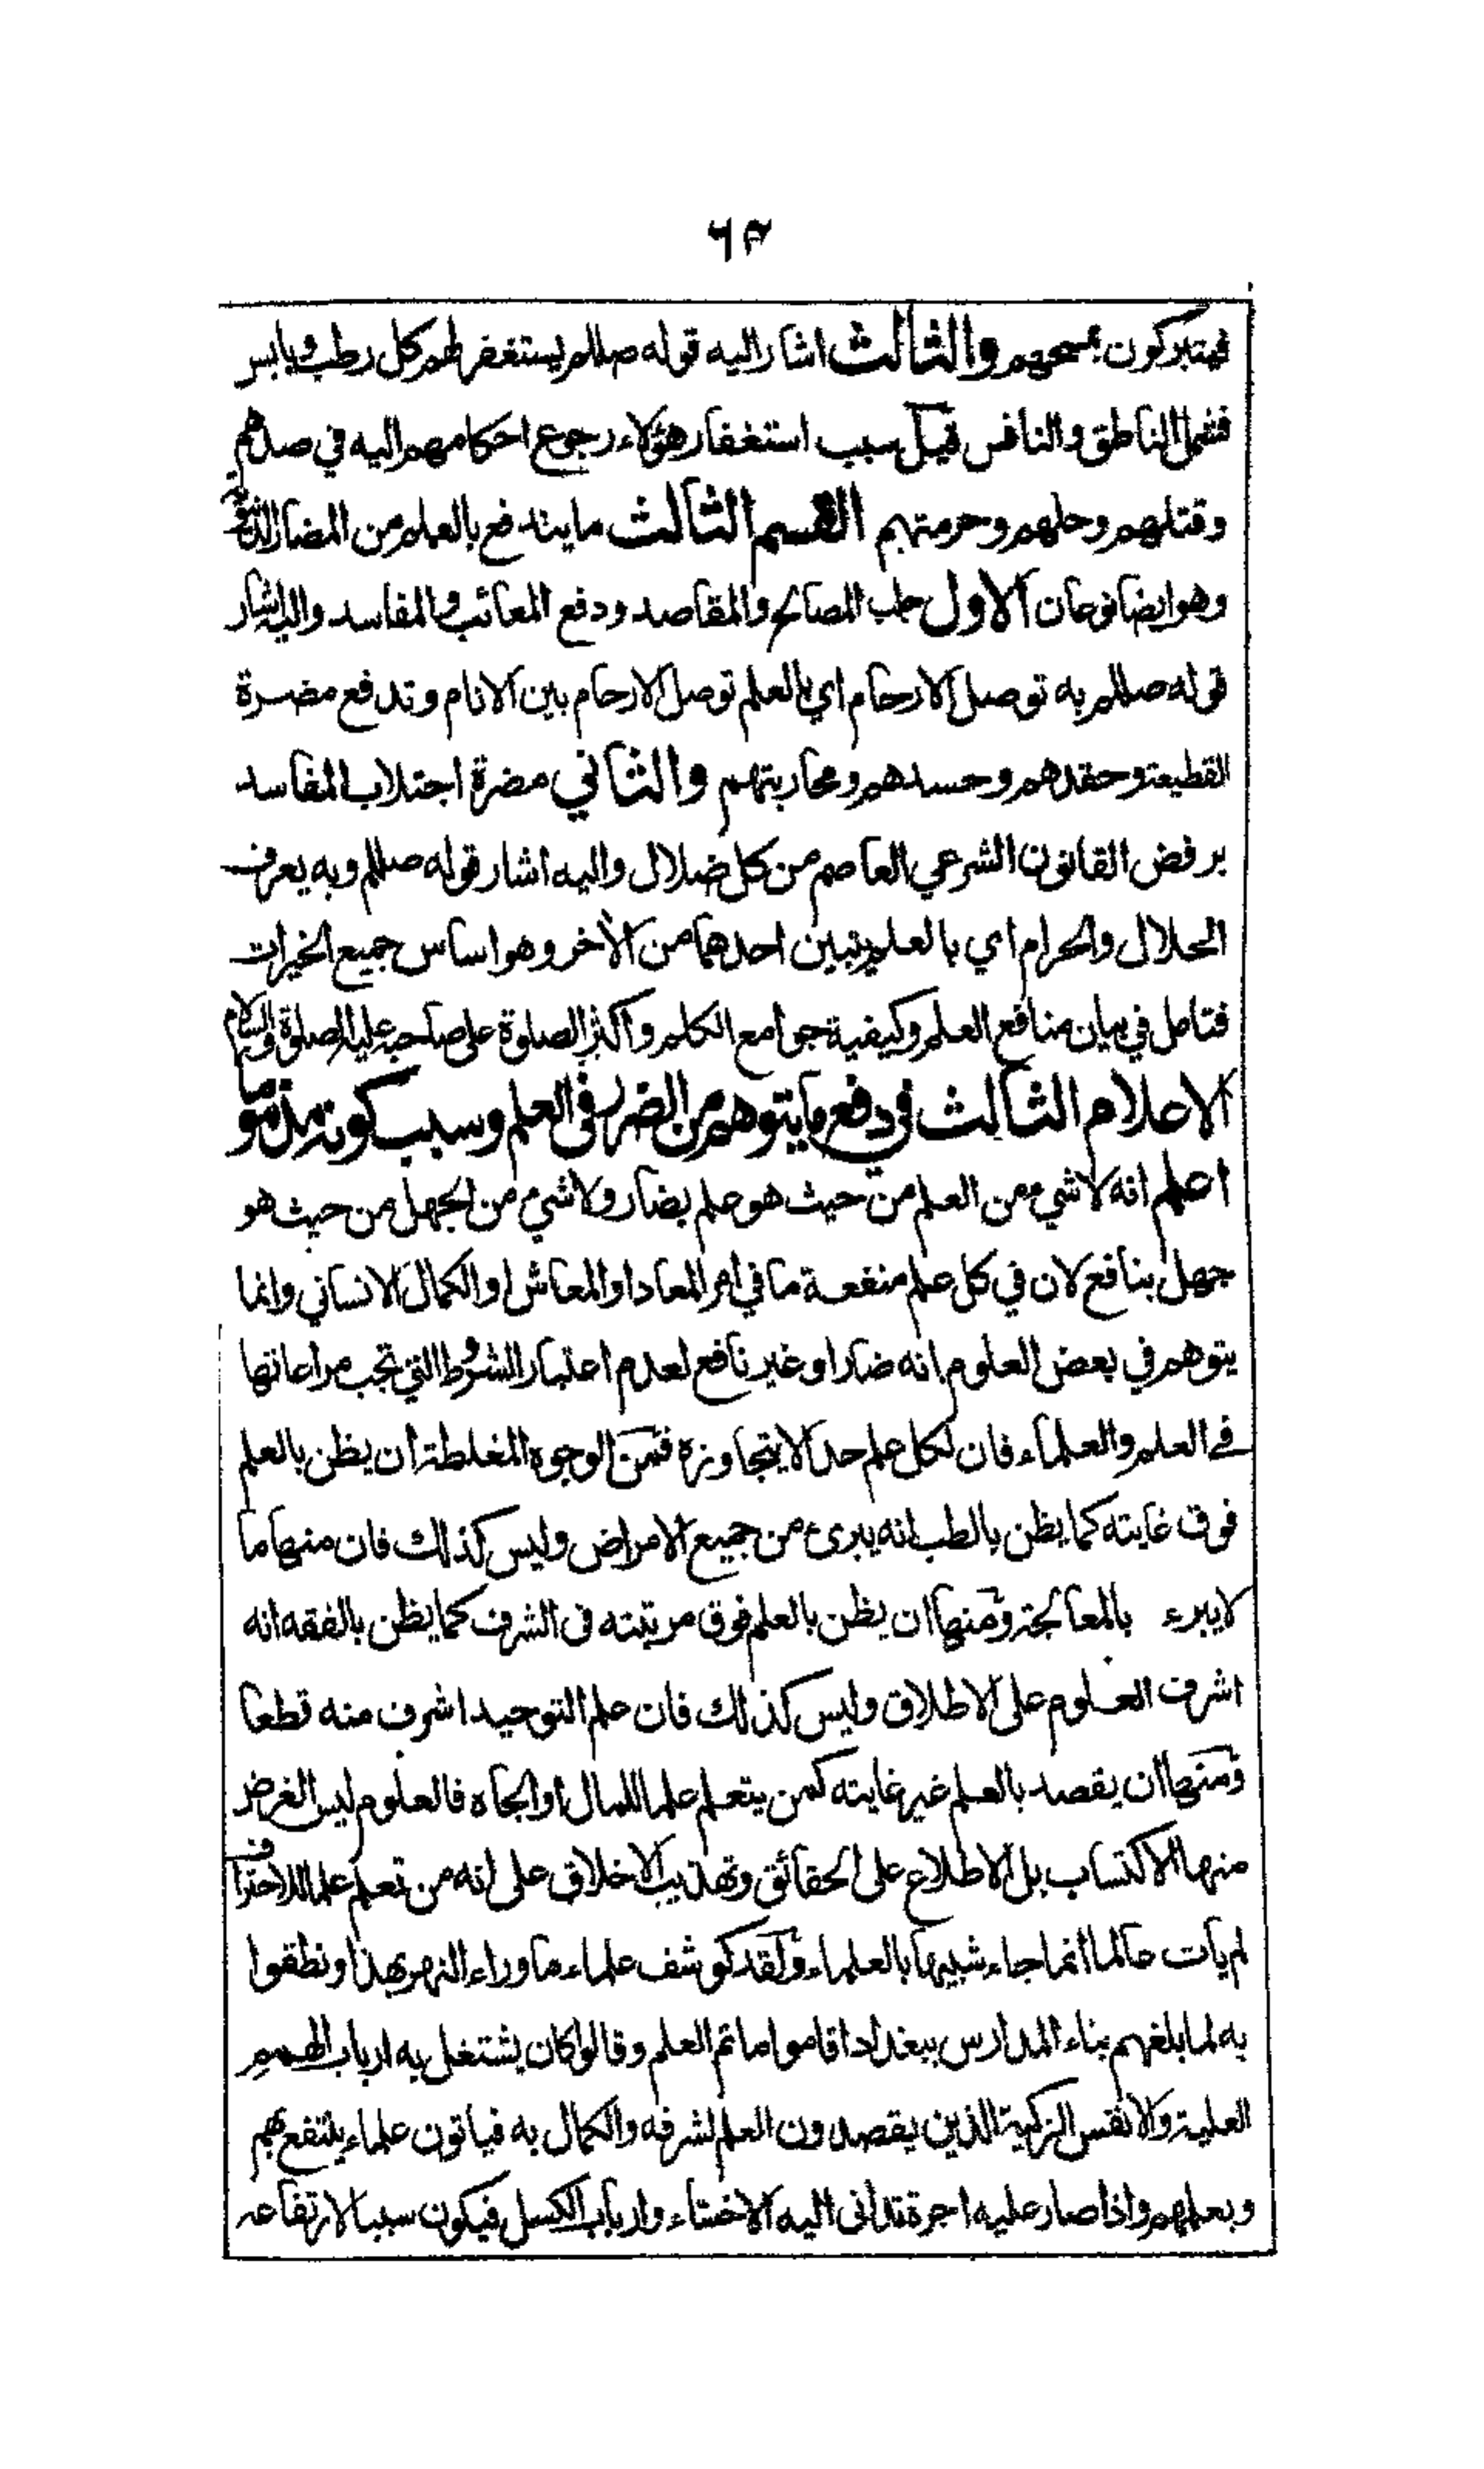 ٦٥
فيتبركون بمسحهم والثالث اشار اليه قوله صللم يستغفر لهم كل رطب ويابس
فشمل الناطق والنافس قيل سبب استغفار هؤلاء رجوع احكامهم اليه في صدهم
وقتلهم وحلهم وحرمتهم القسم الثالث ما يندفع بالعلم من المضار الدنيوية
وهو ايضا نوعان الاول جلب المصالح والمقاصد ودفع المعائب والمفاسد واليه اشار
قوله صللم به توصل الارحام اي بالعلم توصل الارحام بين الانام وتدفع مضرة
القطيعة وحقدهم وحسدهم ومحاربتهم والثاني مضرة اجتلاب المفاسد
برفض القانون الشرعي العاصم من كل ضلال واليه اشار قوله صللم وبه يعرف
الحلال والحرام اي بالعلم يتبين احدهما من الآخر وهو اساس جميع الخيرات
فتامل في بيان منافع العلم وكيفية جوامع الكلم واكثر الصلوة على صاحبه عليه الصلوة والسلام
الاعلام الثالث في دفع ما يتوهم من الضرر في العلم وسبب كونه مذموما
اعلم انه لا شيء من العلم من حيث هو علم بضار ولا شيء من الجهل من حيث هو
جهل بنافع لان في كل علم منفعة ما في امر المعاد او المعاش او الكمال الانساني وانما
يتوهم في بعض العلوم انه ضار او غير نافع لعدم اعتبار الشروط التي تجب مراعاتها
في العلم والعلماء فان لكل علم حدا لا يتجاوزه فمن الوجوه المغلطة ان يظن بالعلم
فوق غايته كما يظن بالطب انه يبرئ من جميع الامراض وليس كذلك فان منها ما
لا يبرء بالمعالجة ومنها ان يظن بالعلم فوق مرتبته في الشرف كما يظن بالفقه انه
اشرف العلوم على الاطلاق وليس كذلك فان علم التوحيد اشرف منه قطعا
ومنها ان يقصد بالعلم غير غايته كمن يتعلم علما للمال او الجاه فالعلوم ليس الغرض
منها الاكتساب بل الاطلاع على الحقائق وتهذيب الاخلاق على انه من تعلم علما للاحتراف
لم يات عالما انما جاء شبيها بالعلماء ولقد كوشف علماء ما وراء النهر بهذا ونطقوا
به لما بلغهم بناء المدارس ببغداد اقاموا ماتم العلم وقالوا كان يشتغل به ارباب الهمم
العلية والانفس الزكية الذين يقصدون العلم لشرفه والكمال به فياتون علماء ينتفع بهم
وبعلمهم واذا صار عليه اجرة تدانى اليه الاخساء وارباب الكسل فيكون سببا لارتفاعه